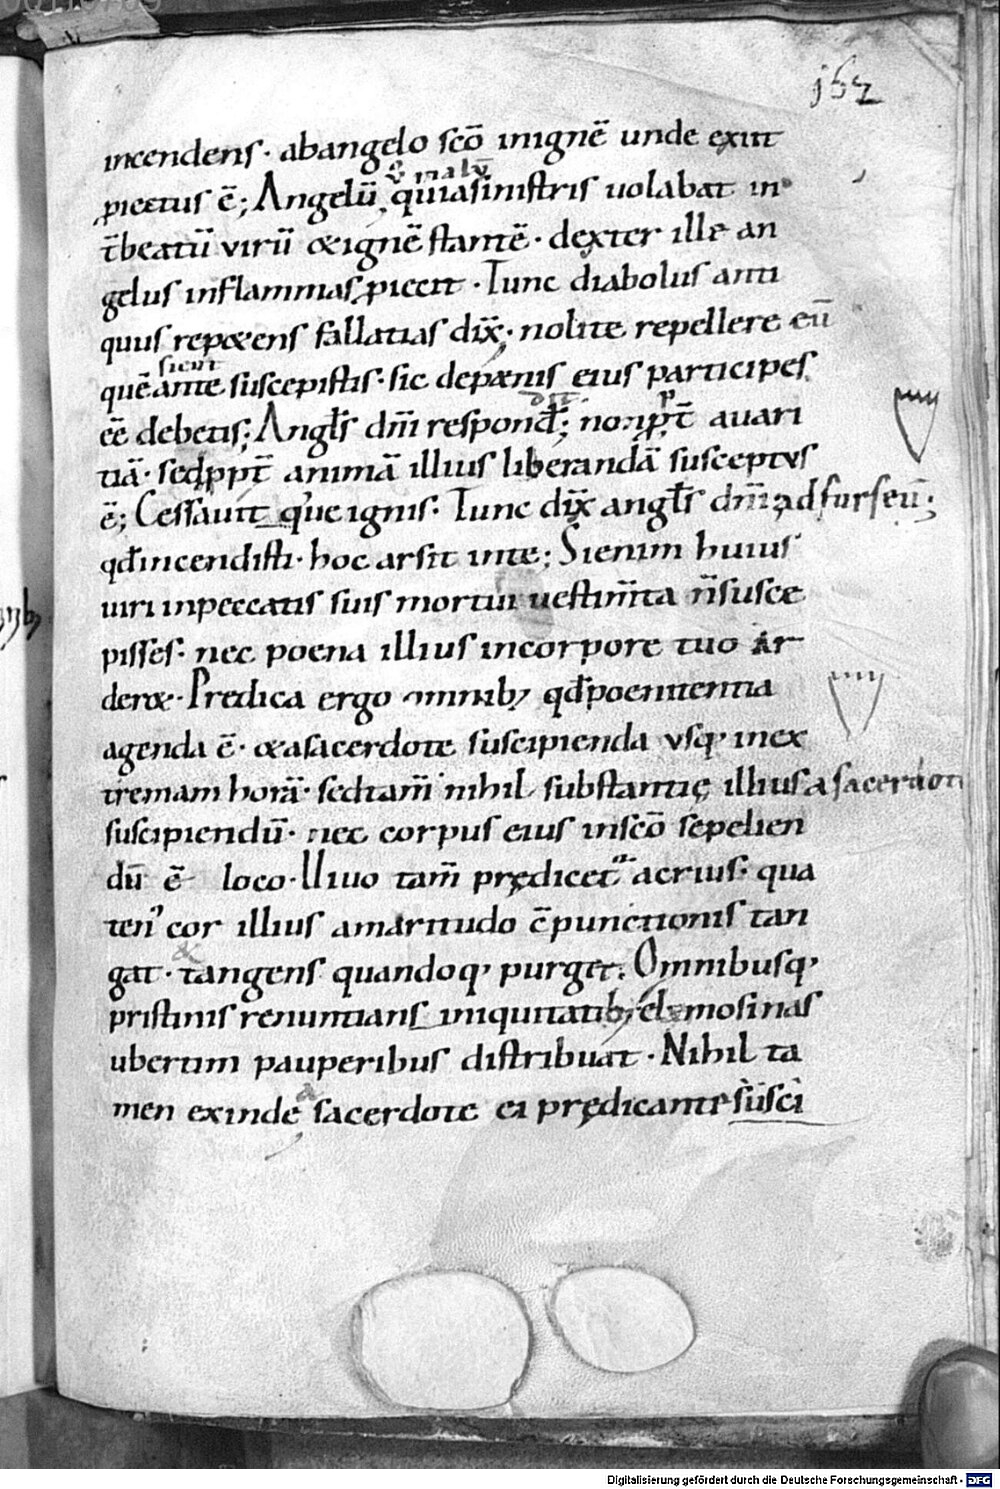 162
incendens· abangelo scō inignē unde exiit
ꝓiectus ē; Angelū quiasinistris uolabat in
t̄beatū virū &ignē stantē· dexter ille an
gelus inflammas ꝓiecit· Tunc diabolus anti
quus rep&ens fallatias dix̄; nolite repellere eū
sicut
quē ante suscepistis· sic depęnis eius participes
eē debetis; Angl̄s dn̄i respond̄; non ꝓpt̄ auari
tiā· sed ppt̄ animā illius liberandā susceptus
ē; Cessauit q'ue ignis· Tunc dix̄ angl̄s dn̄i ad furseū;
qd̄incendisti· hoc arsit inte; Sienim huius
uiri inpeccatis suis mortui uestim̄ta n̄susce
pisses· nec poena illius incorpore tuo ar
der&· Predica ergo omnib; qd̄poenitentia
agenda ē· &asacerdote suscipienda vsq; inex
tremam horā· sedtam̄ nihil substantię illius a sacerdoti
suscipiendū· nec corpus eius inscō sepelien
dū ē loco· Uiuo tam̄ prędicet acrius· qua
ten' cor illius amaritudo c̄punctionis tan
&
gat· tangens quandoq; purget. Omnibusq;
pristinis renuntians iniquitatib; elymosinas
ubertim pauperibus distribuat· Nihil ta
a
men exinde sacerdote ei prędicante susci
Digitalisierung gefördert durch die Deutsche Forschungsgemeinschaft - DFG